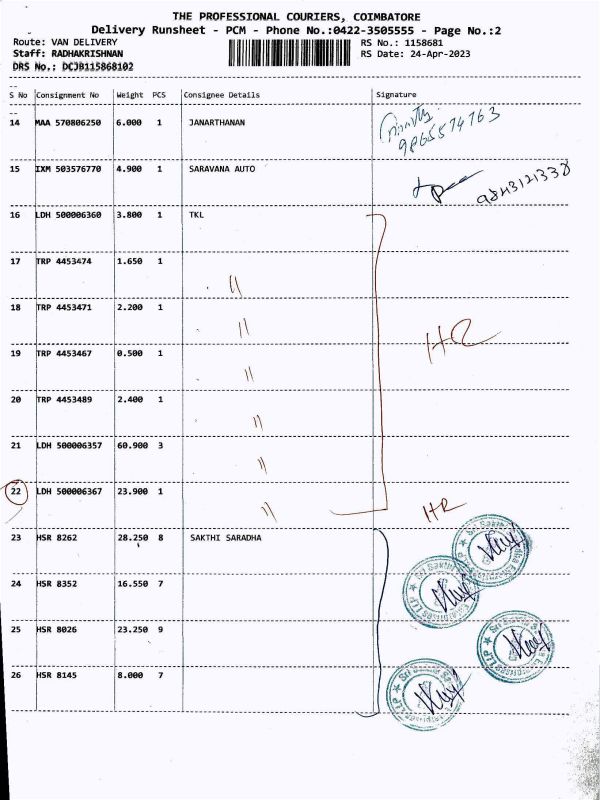 THE PROFESSIONAL COURIERS, COIMBATORE
Delivery Runsheet - PCM - Phone No.:0422-3505555 - Page No.:2
Route: VAN DELIVERY RS No.: 1158681
Staff: RADHAKRISHNAN RS Date: 24-Apr-2023
DRS No.: DCJB115868102
S No Consignment No Weight PCS Consignee Details Signature
14 MAA 570806250 6.000 1 JANARTHANAN
9865574763
15 IXM 503576770 4.900 1 SARAVANA AUTO 9843121338
16 LDH 500006360 3.800 1 TKL
17 TRP 4453474 1.650 1 "
18 TRP 4453471 2.200 1 "
19 TRP 4453467 0.500 1 "
20 TRP 4453489 2.400 1 "
21 LDH 500006357 60.900 3 "
22 LDH 500006367 23.900 1 "
23 HSR 8262 28.250 8 SAKTHI SARADHA
24 HSR 8352 16.550 7
25 HSR 8026 23.250 9
26 HSR 8145 8.000 7